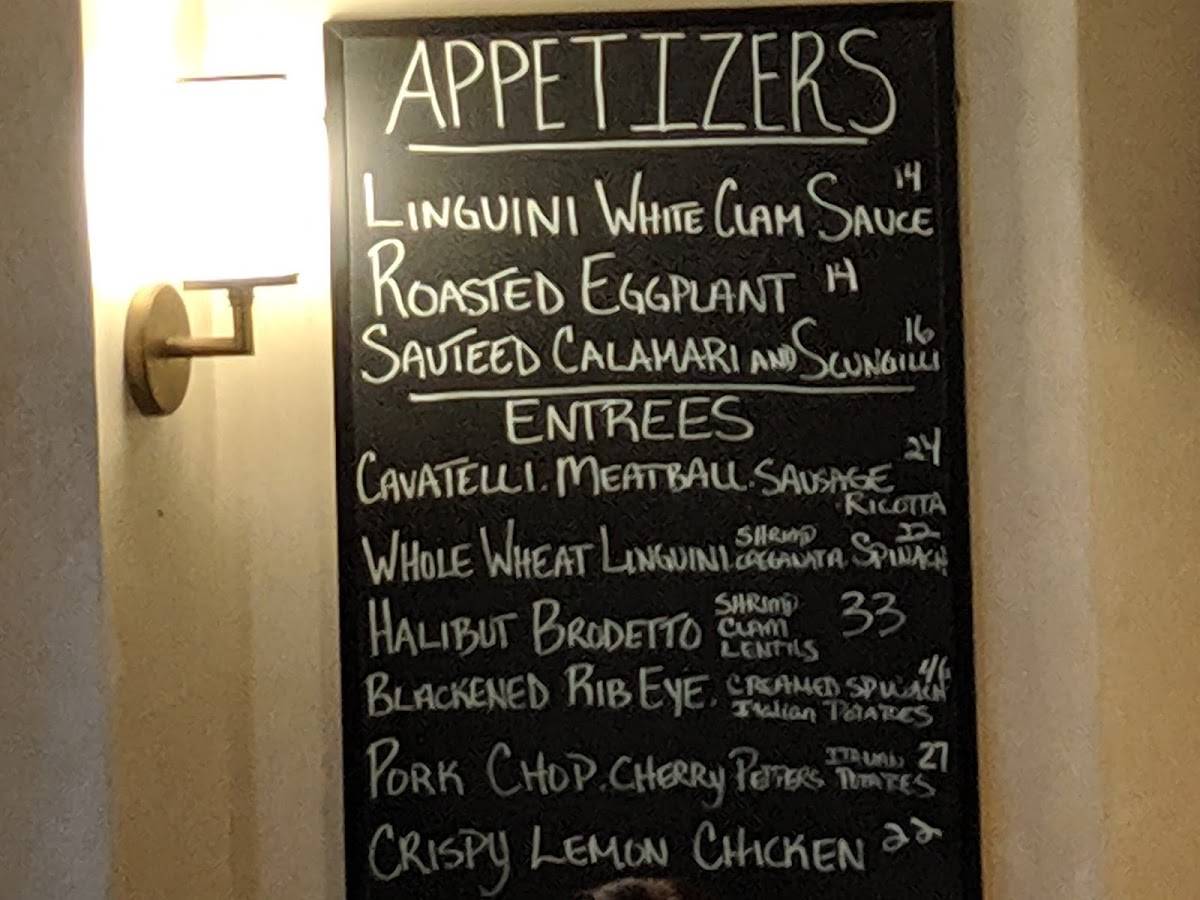 APPETIZERS
LINGUINI WHITE CLAM SAUCE 14
ROASTED EGGPLANT 14
SAUTEED CALAMARI AND SCUNGILLI 16
ENTREES
CAVATELLI. MEATBALL. SAUSAGE 24
RICOTTA
WHOLE WHEAT LINGUINI SHRIMP OREGANATA SPINACH 22
HALIBUT BRODETTO SHRIMP 33
CLAM
LENTILS
BLACKENED RIB EYE. CREAMED SPINACH
ITALIAN POTATOES
PORK CHOP. CHERRY PEPPERS ITALIAN 27
POTATOES
CRISPY LEMON CHICKEN 22